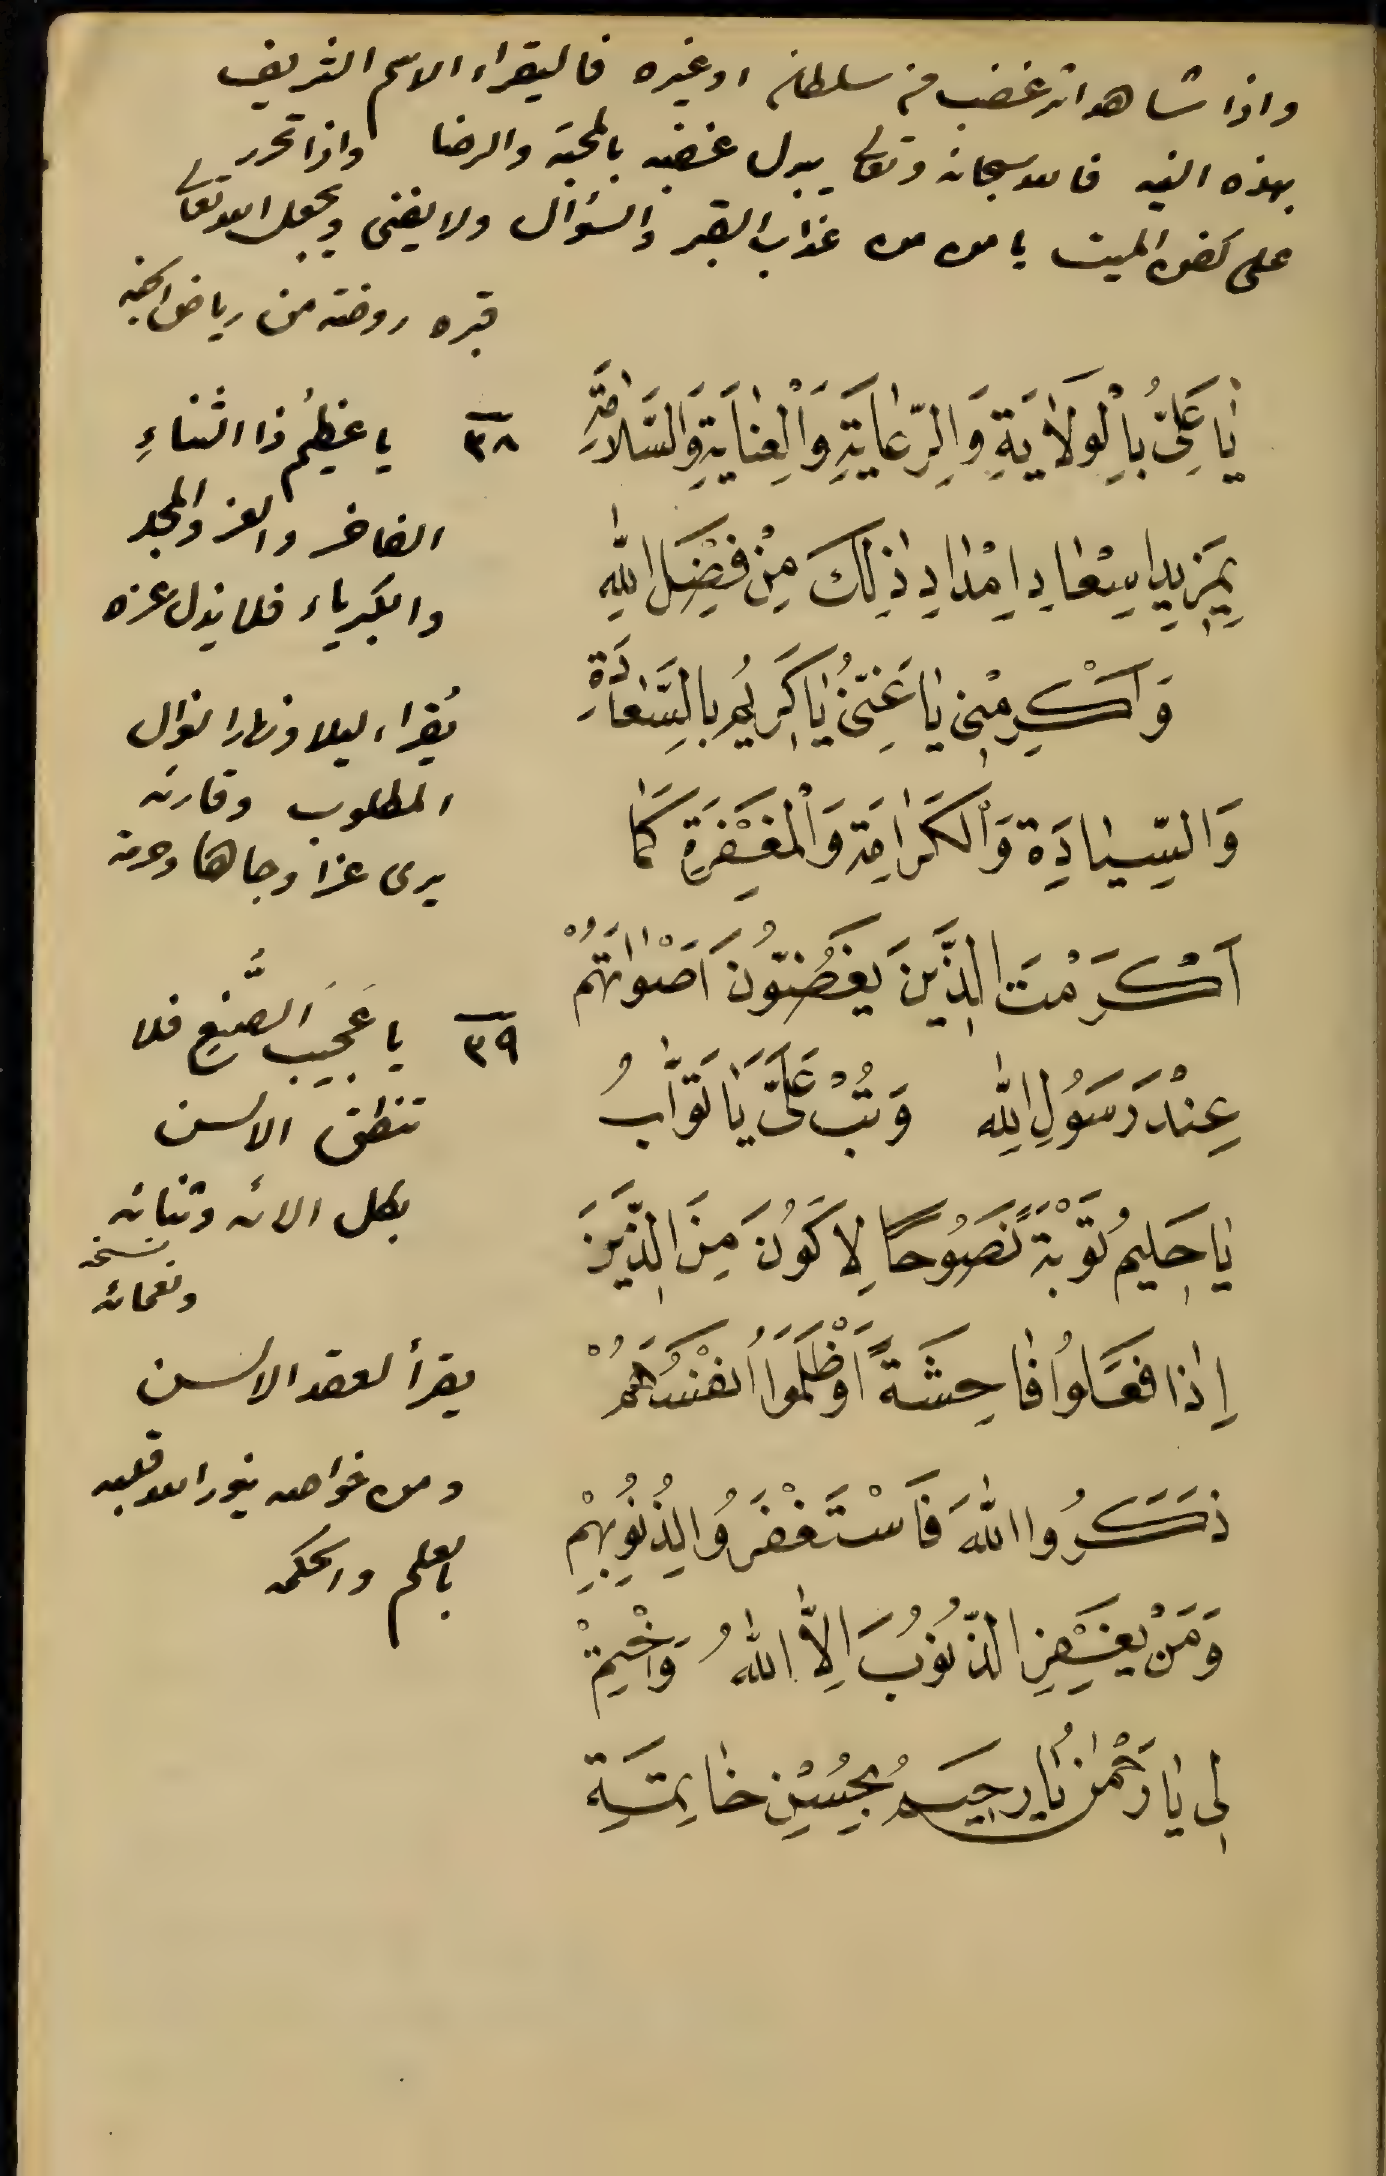 واذا شاهد اثر غضب من سلطان اوغيره فاليقراء الاسم الشريف
بهذه النيه فالله سبحانه وتعالى يبدل غضبه بالمحبة والرضا واذا تحرر
على كفن الميت يامن من عذاب القبر والسؤال ولا يفنى ويجعل الله تعالى
قبره روضة من رياض الجنه
يَا عَلِىُّ بِالْوَلَايَةِ وَالرِّعَايَةِ وَالْعِنَايَةِ وَالسَّلَامَةِ
بِمَزِيدِ اِسْعَادِ اِمْدَادِ ذٰلِكَ مِنْ فَضْلِ اللّٰهِ
وَاَكْرِمْنِى يَا غَنِىُّ يَا كَرِيمُ بِالسَّعَادَةِ
وَالسِّيَادَةِ وَالْكَرَامَةِ وَالْمَغْفِرَةِ كَمَا
اَكْرَمْتَ الَّذِينَ يَغُضُّونَ اَصْوَاتَهُمْ
عِنْدَ رَسُولِ اللّٰهِ وَتُبْ عَلَىَّ يَا تَوَّابُ
يَا حَلِيمُ تَوْبَةً نَصُوحًا لِاَكُونَ مِنَ الَّذِينَ
اِذَا فَعَلُوا فَاحِشَةً اَوْ ظَلَمُوا اَنْفُسَهُمْ
ذَكَرُوا اللّٰهَ فَاسْتَغْفَرُوا لِذُنُوبِهِمْ
وَمَنْ يَغْفِرُ الذُّنُوبَ اِلَّا اللّٰهُ وَاخْتِمْ
لِى يَا رَحْمٰنُ يَا رَحِيمُ بِحُسْنِ خَاتِمَةِ
٣٨ يا عَظِيمُ ذا الثناءِ
الفاخر والعز والمجد
والكبرياء فلا يذل عزه
يُقراء ليلا ونهارا لنوال
المطلوب وقارئه
يرى عزا وجاها وحرمة
٣٩ يا عَجِيبَ الصُّنْعِ فلا
تنطق الالسن
بكل الائه وثنائه
نسخه
ونعمائه
يقرأ لعقد الالسن
ومن خواصه ينور الله قلبه
بالعلم والحكمه